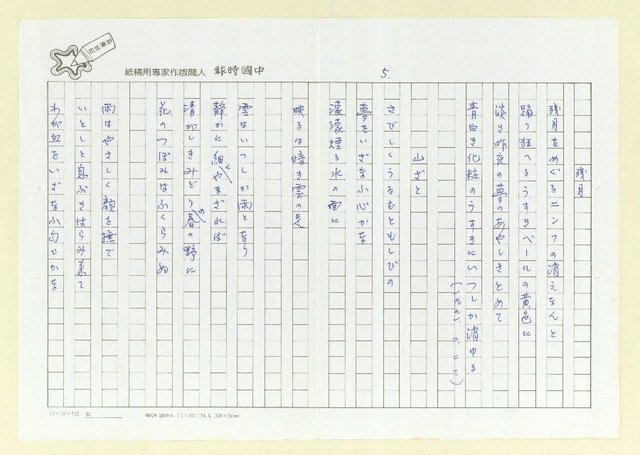 5.
残月
残月をめぐるニンフの消えなんと
踊り狂へるうすきベールの黄色に
淡き昨夜の夢のあやしさとめて
青白き化粧のうすきにいつしか消ゆる
(一九七一、二、二三)
山ざと
さびしくうるむともしびの
夢をいざなふ心かな
濛濛煙る水の面に
映るは暗き雲の足
雲はいつしか雨となり
静かに細くやすざれば
清がしきみどり春の野に
花のつぼみはふくらみぬ
雨はやさしく顔を撫で
いとしと息ぶきはらみ来て
わが血をいざなふ匂ひかな
紙稿用專家作版間人 報時國中
花生筆妙
20×20=400